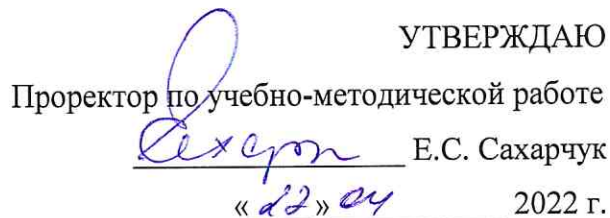 УТВЕРЖДАЮ
Проректор по учебно-методической работе
Е.С. Сахарчук
« 27 » 04 2022 г.